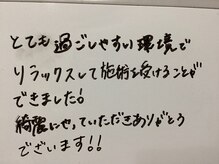 とても過ごしやすい環境で
リラックスして施術を受けることが
できました!
綺麗にやっていただきありがとう
ございます!!